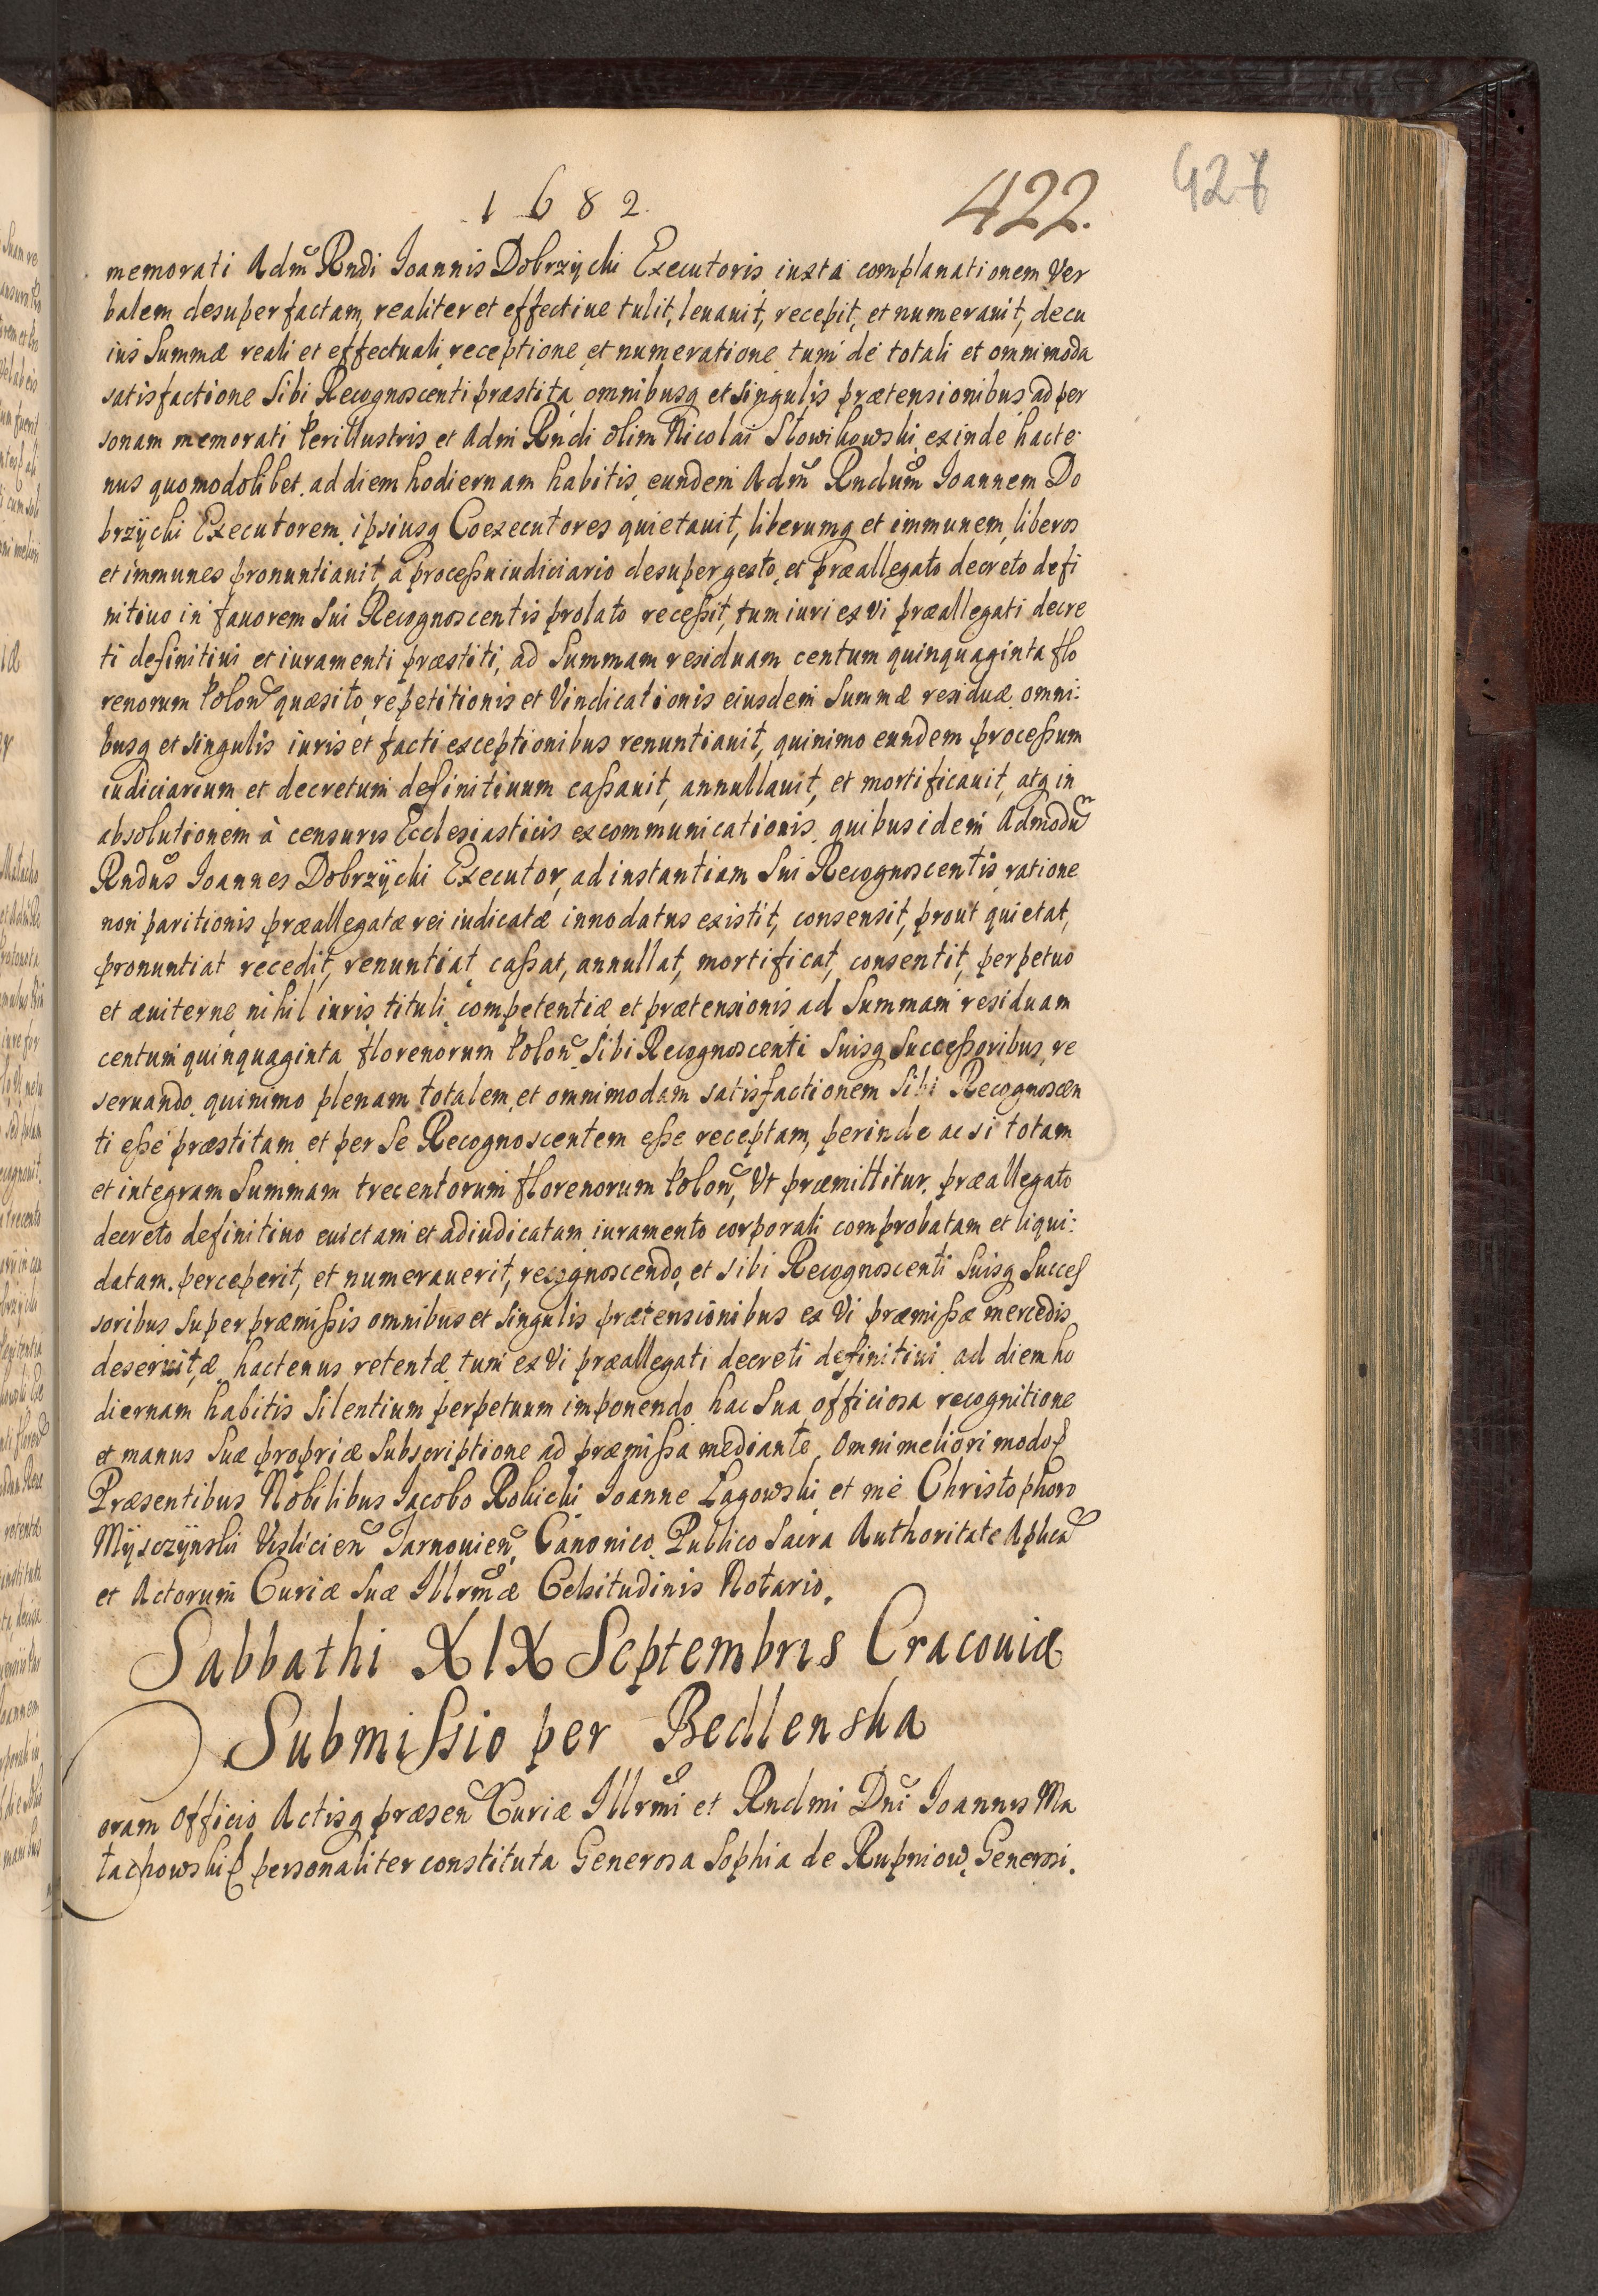 1682.
422.
memorati Adm Rndi Joannis Dobrzycki Executoris iuxta complanationem Ver
balem desuper factam, realiter et effectiue tulit, leuauit, recepit, et numerauit, de cu
ius Summæ reali et effectuali receptione et numeratione tum de totali et omnimoda
satisfactione Sibi Recognoscenti præstita omnibusq et Singulis prætensionibus ad per
sonam memorati Perillustris et Adm Rndi olim Nicolai Słowikowski exinde hacte
nus quomodolibet ad diem hodiernam habitis, eundem Adm Rndum Joannem Do
brzycki Executorem, ipsiusq Coexecutores quietauit, liberumq et immunem, liberos
et immunes pronuntiauit, à processu iudiciario desuper gesto, et præallegato decreto defi
nitiuo in fauorem Sui Recognoscentis prolato recessit, tum iuri ex Vi præallegati decre
ti definitiui et iuramenti præstiti, ad Summam residuam centum quinquaginta flo
renorum Polon quæsito, repetitionis et Vindicationis eiusdem Summæ residuæ omni:
busq et Singulis iuris et facti exceptionibus renuntiauit, quinimo eundem processum
iudiciarium et decretum definitiuum cassauit, annullauit, et mortificauit, atq in
absolutionem à censuris Ecclesiasticis excommunicationis quibus idem Admodum
Rndus Joannes Dobrzycki Executor, ad instantiam Sui Recognoscentis ratione
non paritionis præallegatæ rei iudicatæ innodatus existit, consensit, prout quietat,
pronuntiat recedit, renuntiat cassat, annullat, mortificat, consentit, perpetuo
et æuiterne nihil iuris tituli competentiæ et prætensionis ad Summam residuam
centum quinquaginta florenorum Polon Sibi Recognoscenti Suisq Successoribus, re
seruando quinimo plenam totalem et omnimodam satisfactionem Sibi Recognoscen
ti esse præstitam et per Se Recognoscentem esse receptam, perinde ac si totam
et integram Summam trecentorum florenorum Polon, Vt præmittitur, præallegato
decreto definitiuo euictam et adiudicatam iuramento corporali comprobatam et liqui:
datam perceperit, et numerauerit, recognoscendo, et sibi Recognoscenti Suisq Succes
soribus Super præmissis omnibus et Singulis prætensionibus ex Vi præmissæ mercedis
deseruitæ hactenus retentæ tum ex Vi præallegati decreti definitiui ad diem ho
diernam habitis Silentium perpetuum imponendo hac Sua officiosa recognitione
et manus Suæ propriæ Subscriptione ad præmissa mediante Omni meliori modo
Præsentibus Nobilibus Jacobo Rokicki Joanne Łagowski et me Christophoro
Mysczynski Vislicien Tarnouien Canonico Publico Sacra Authoritate Aplica
et Actorum Curiæ Suæ Illrmæ Celsitudinis Notario.
Sabbathi XIX Septembris Cracouiæ
Submissio per Bedlenska
Coram Officio Actisq præsen Curiæ Illrmi et Rndmi Dni Joannis Ma
łachowski personaliter constituta Generosa Sophia de Rupniow, Generosi.